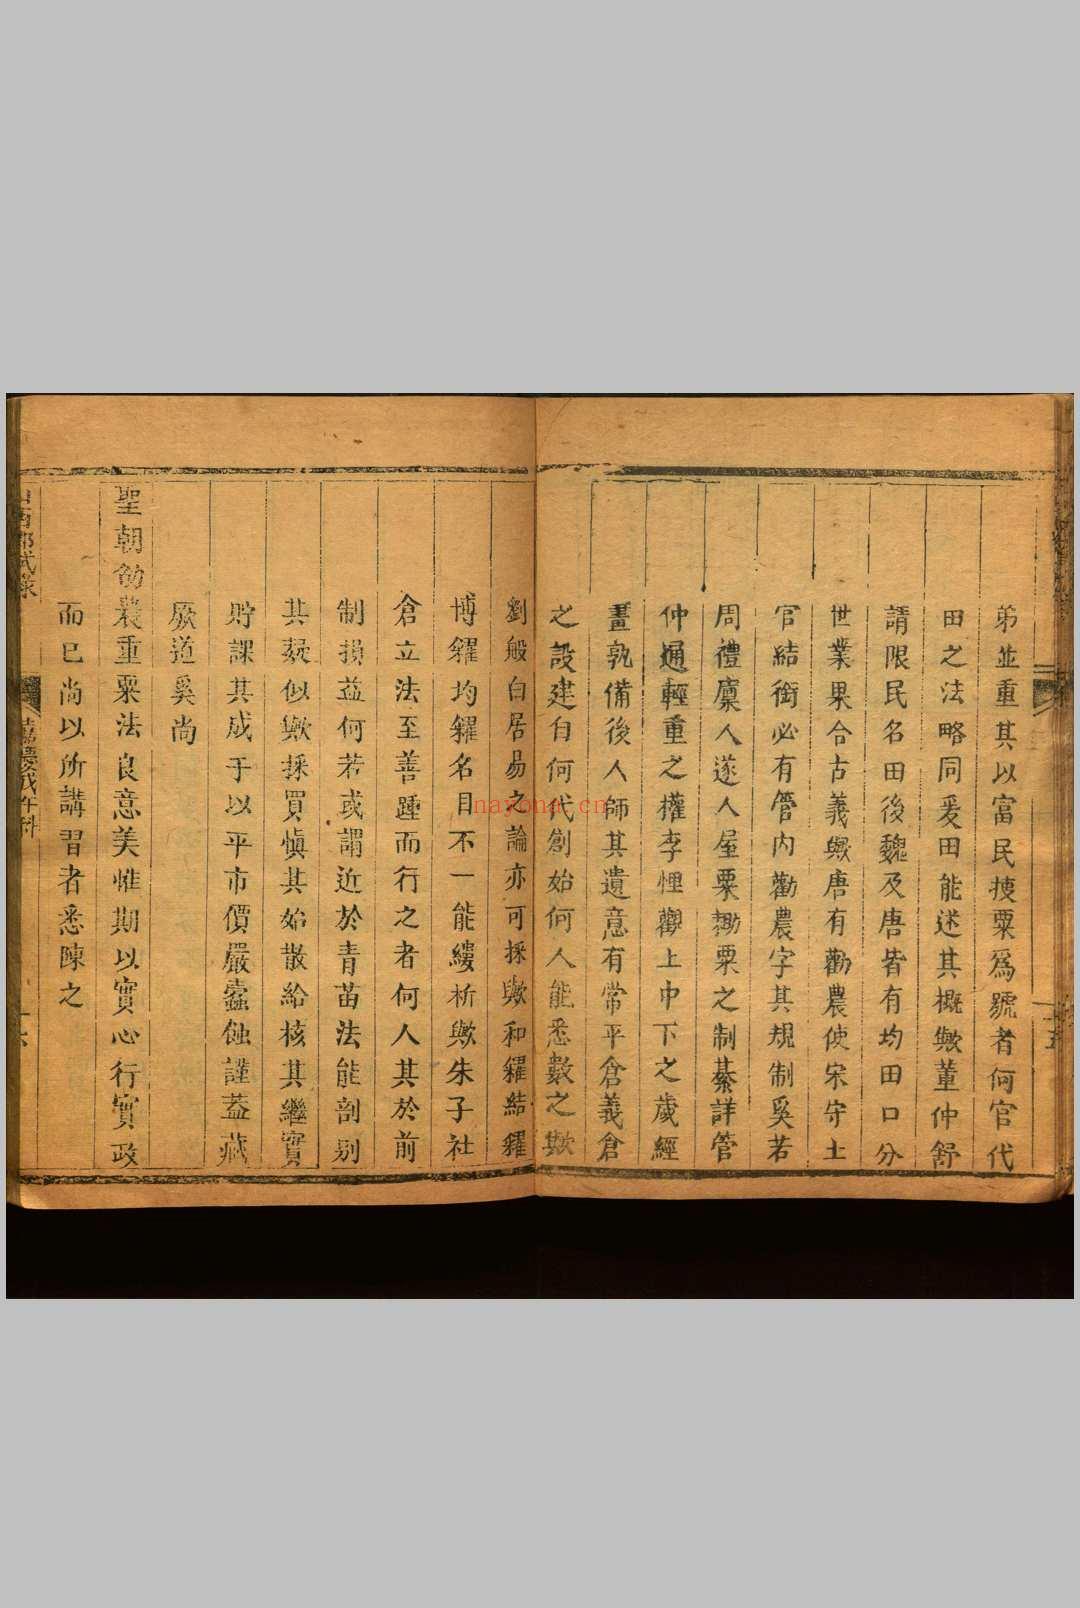 弟並重其以富民捜粟爲號者何官代
田之法略同爰田能述其概歟董仲舒
請限民名田後魏及唐皆有均田口分
世業果合古義歟唐有勸農使宋守土
官結銜必有管內勸農字其規制奚若
周禮廩人遂人屋粟耡粟之制綦詳管
仲通輕重之權李悝觀上中下之歲經
畫孰備後人師其遺意有常平倉義倉
之設建自何代創始何人能悉數之歟
劉般白居易之論亦可採歟和糴結糴
博糴均糴名目不一能縷析歟朱子社
倉立法至善踵而行之者何人其於前
制損益何若或謂近於青苗法能剖别
其疑似歟採買愼其始散給核其繼實
貯課其成于以平市價嚴蠹蝕謹蓋藏
厥道奚尚
聖朝劭農重粟法良意美惟期以實心行實政
而已尚以所講習者悉陳之
嘉慶戊午科
nayona.cn